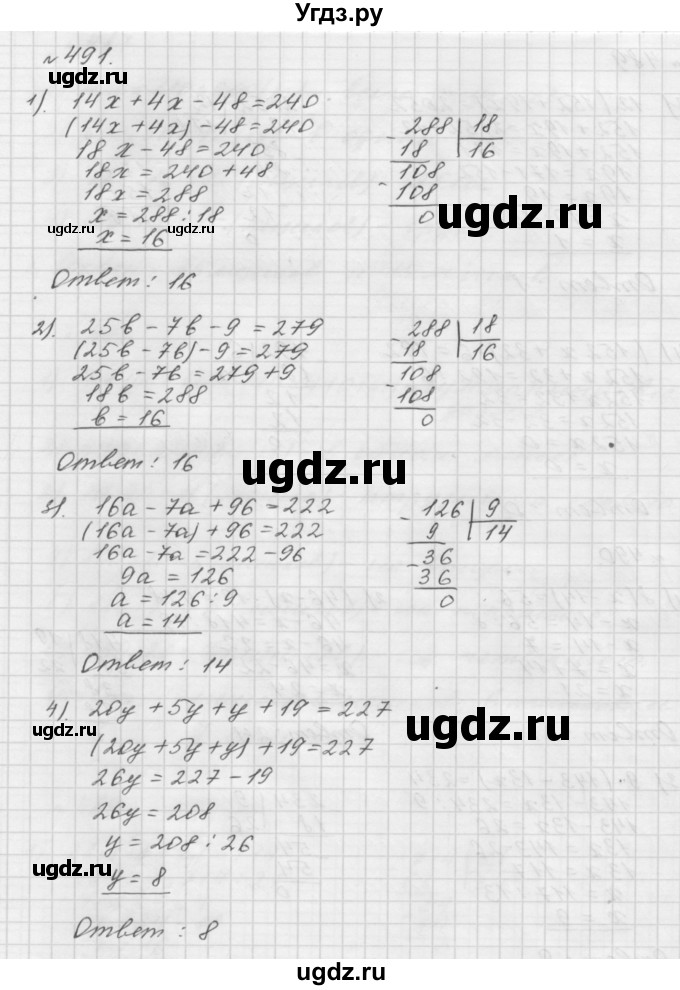 Угдз.ру
№ 491.
1). 14x + 4x - 48 = 240
(14x + 4x) - 48 = 240
18x - 48 = 240
18x = 240 + 48
18x = 288
x = 288 : 18
x = 16
- 288 | 18
18 | 16
- 108
108
0
Ответ: 16
2). 25в - 7в - 9 = 279
(25в - 7в) - 9 = 279
25в - 7в = 279 + 9
18в = 288
в = 16
- 288 | 18
18 | 16
- 108
108
0
Ответ: 16
3). 16a - 7a + 96 = 222
(16a - 7a) + 96 = 222
16a - 7a = 222 - 96
9a = 126
a = 126 : 9
a = 14
- 126 | 9
9 | 14
- 36
36
0
Ответ: 14
4). 20y + 5y + y + 19 = 227
(20y + 5y + y) + 19 = 227
26y = 227 - 19
26y = 208
y = 208 : 26
y = 8
Ответ: 8
ugdz.ru
ugdz.ru
ugdz.ru
ugdz.ru
ugdz.ru
ugdz.ru
ugdz.ru
ugdz.ru
ugdz.ru